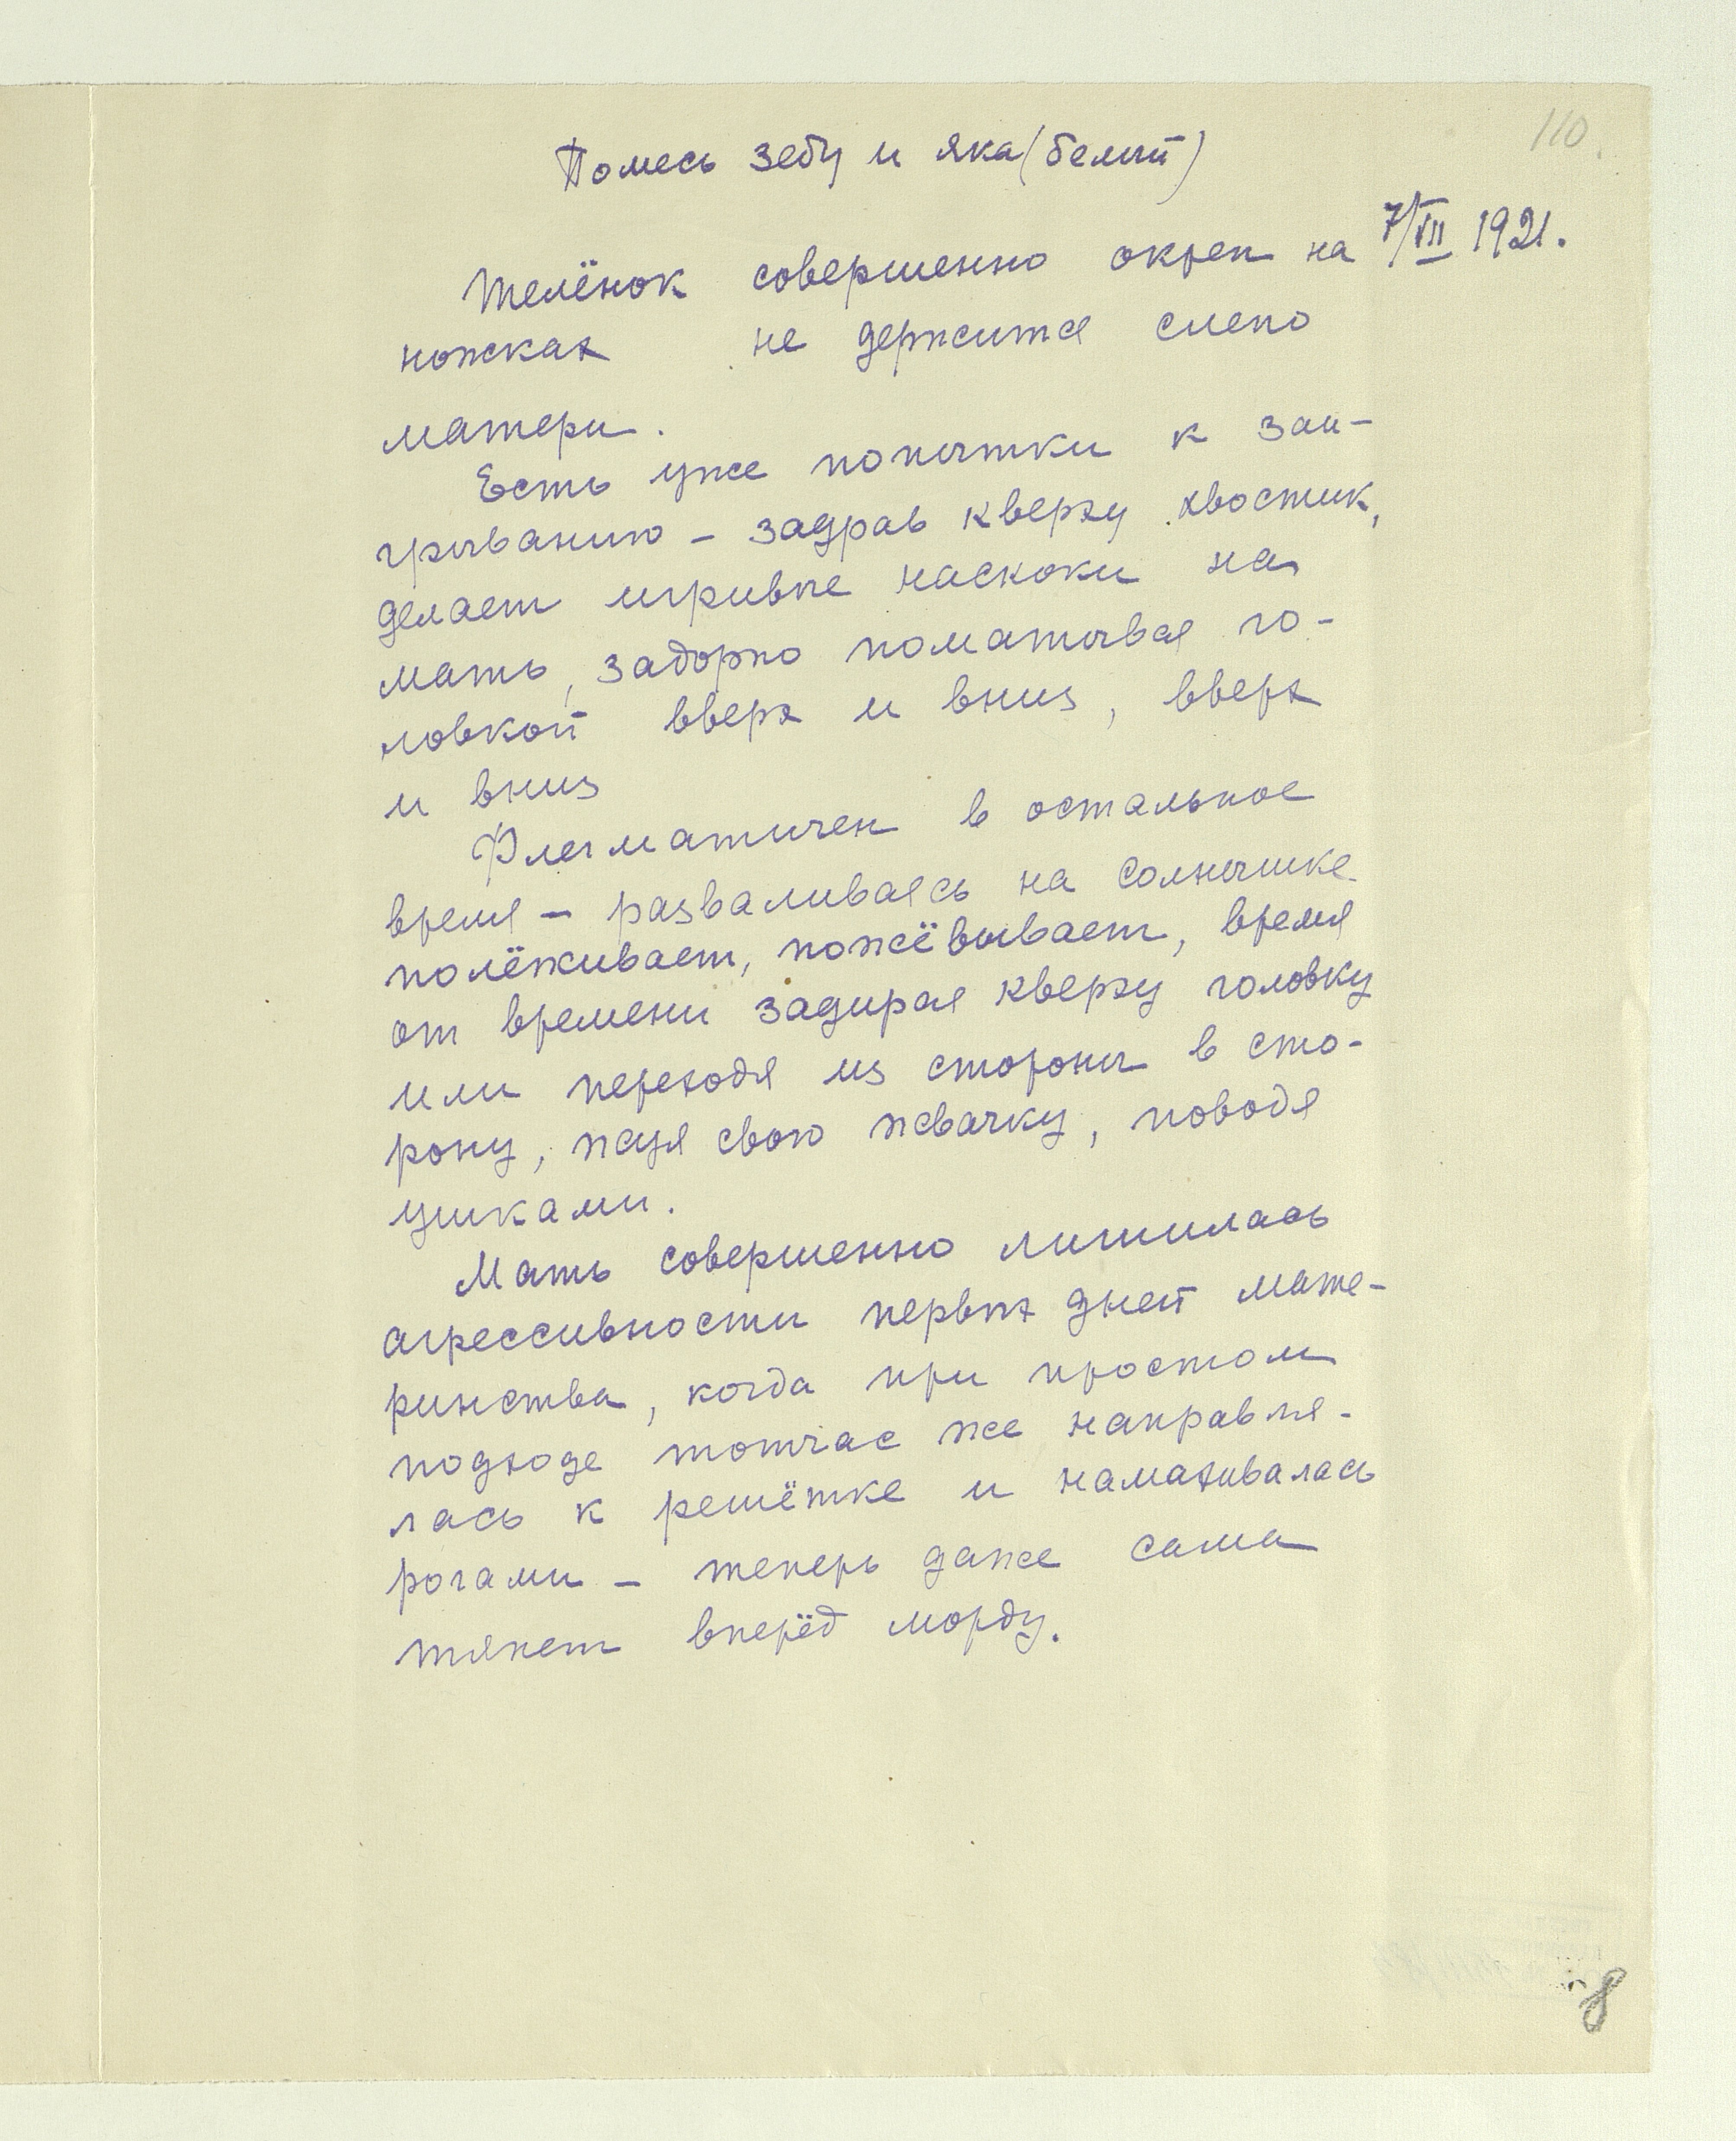 110.
Помесь зебу и яка (белый)
7/VII 1921.
Телёнок совершенно окреп на
ножках не держится слепо
матери.
Есть уже попытки к заи-
грыванию – задрав кверху хвостик,
делает игривые наскоки на
мать, задорно поматывая го-
ловкой вверх и вниз, вверх
и вниз
Флегматичен в остальное
время – разваливаясь на солнышке
полёживает, пожёвывает, время
от времени задирая кверху головку
или переходя из стороны в сто-
рону, жуя свою жвачку, поводя
ушками.
Мать совершенно лишилась
агрессивности первых дней мате-
ринства, когда при простом
подходе тотчас же направля-
лась к решётке и намахивалась
рогами – теперь даже сама
тянет вперёд морду.
8